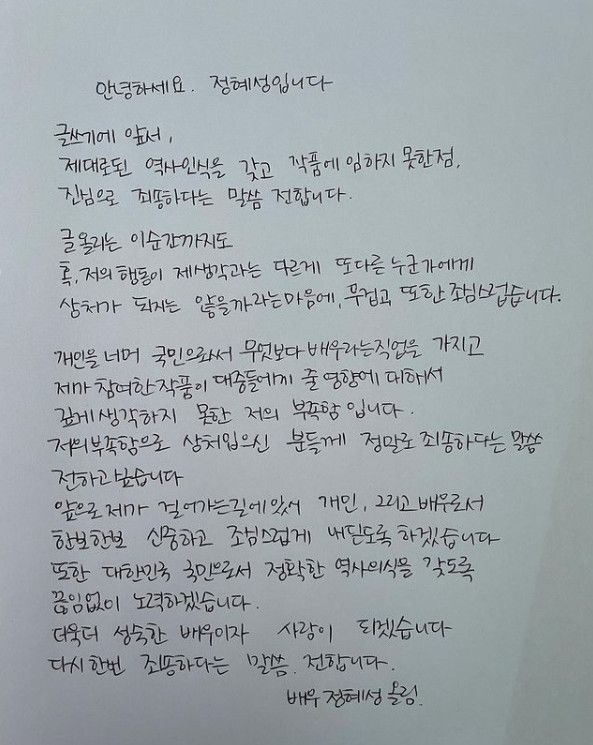 안녕하세요. 정혜성입니다
글쓰기에 앞서,
제대로된 역사인식을 갖고 작품에 임하지 못한점,
진심으로 죄송하다는 말씀 전합니다.
글 올리는 이순간까지도
혹, 저의 행동이 제생각과는 다르게 또다른 누군가에게
상처가 되지는 않을까라는마음에, 무겁고, 또한 조심스럽습니다.
개인을 너머 국민으로써 무엇보다 배우라는직업을 가지고
제가 참여한 작품이 대중들에게 줄 영향에 대해서
깊게 생각하지 못한 저의 부족함 입니다.
저의부족함으로 상처입으신 분들께 정말로 죄송하다는 말씀
전하고 싶습니다
앞으로 제가 걸어가는길에 있어 개인, 그리고 배우로서
한보한보 신중하고 조심스럽게 내딛도록 하겠습니다
또한 대한민국 국민으로서 정확한 역사의식을 갖도록
끊임없이 노력하겠습니다.
더욱더 성숙한 배우이자 사람이 되겠습니다
다시한번 죄송하다는 말씀. 전합니다.
배우 정혜성 올림.